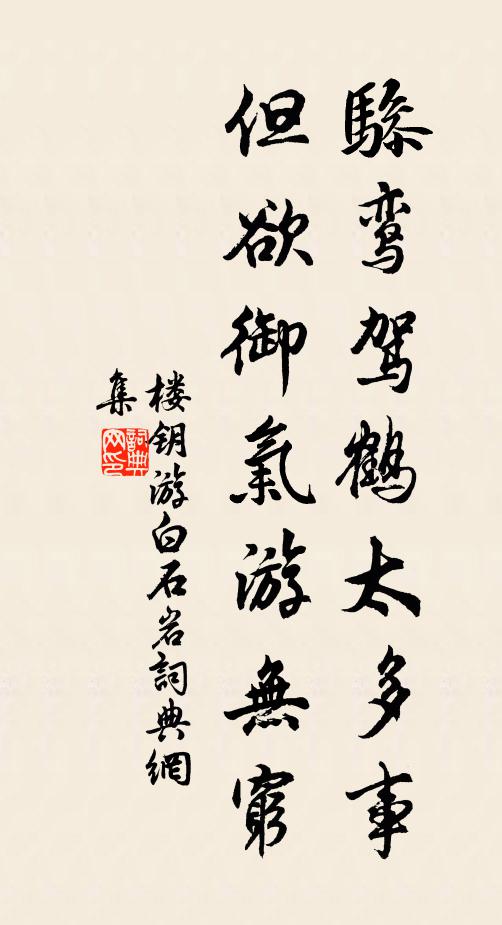 騄鸾駕鹤太多事
但欲御氣游無窮
楼钥游白石岩詞典網
集
詞典网印